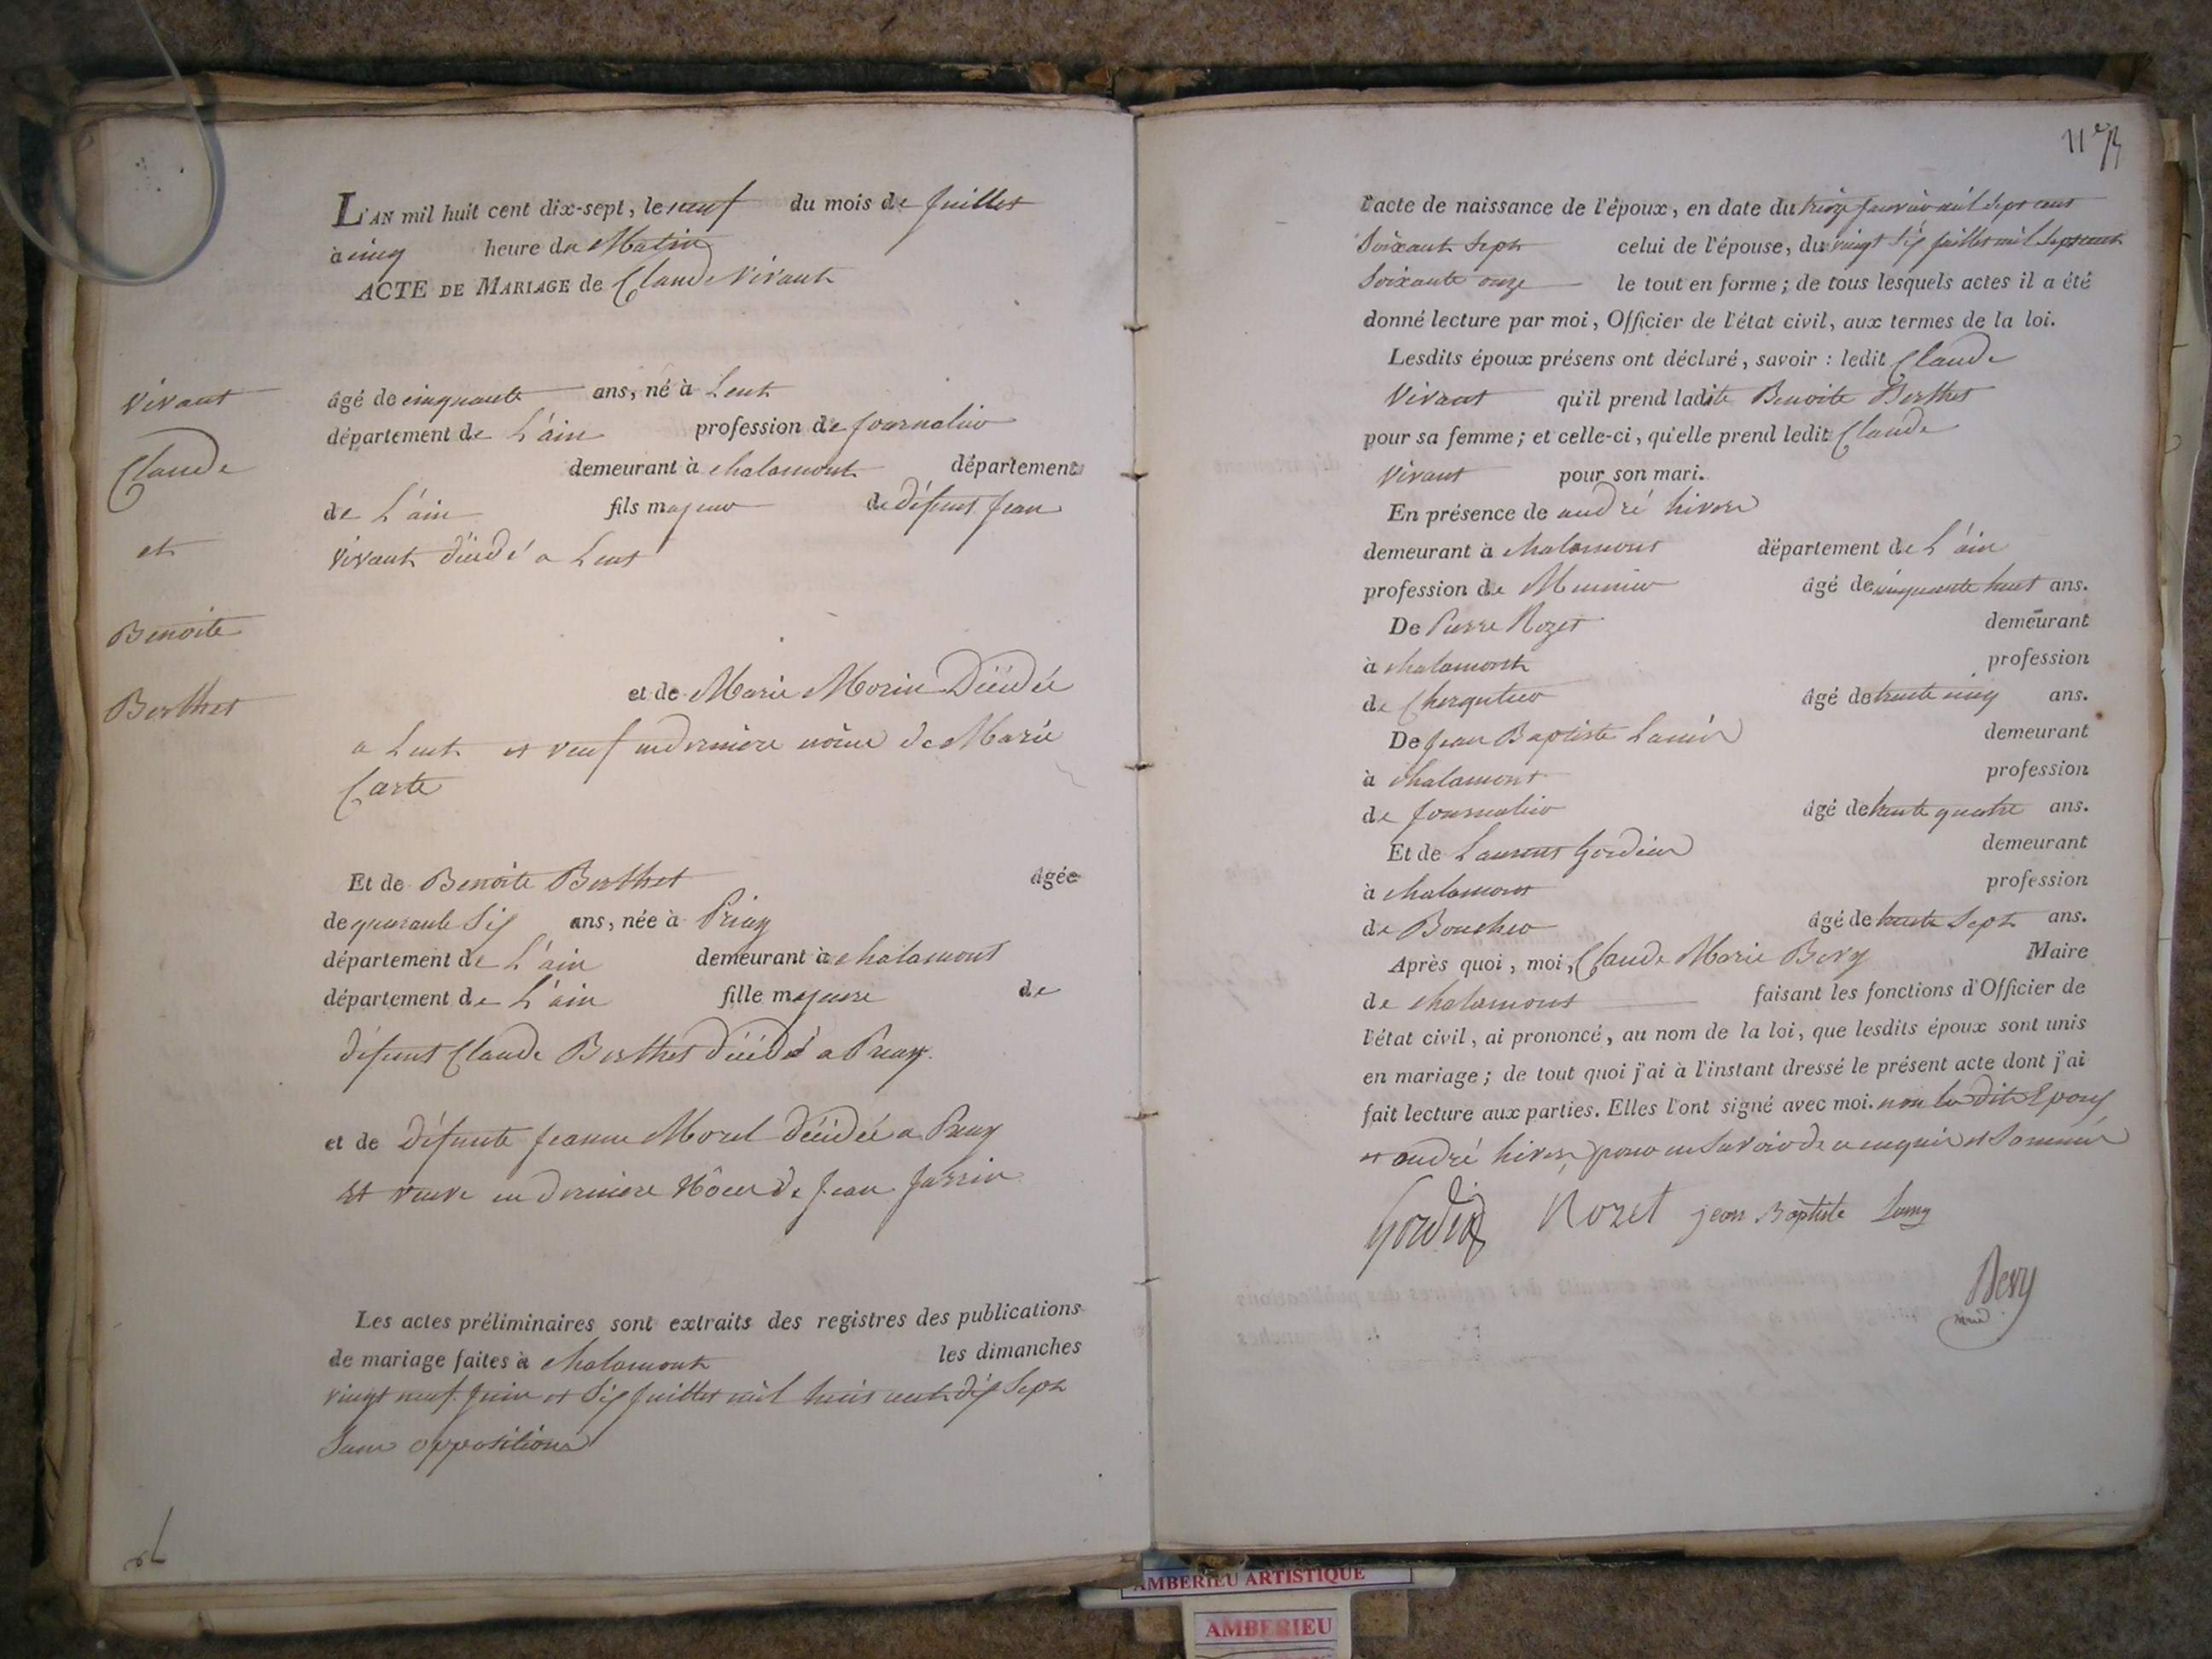 L'AN mil huit cent dix-sept, le neuf du mois de juillet
à cinq heure du Matin
ACTE DE MARIAGE de Claude Vivant
Vivant
Claude
et
Benoite
Berthet
âgé de cinquante ans, né à Lent
département de L'ain profession de journalier
demeurant à chalamont département
de L'ain fils majeur de défunt Jean
Vivant décédé a Lent
et de Marie Morin Décédée
a Lent et veuf en derniere nôces de Marie
Carte
Et de Benoite Berthet âgée
de quarante six ans, née à Priay
département de L'ain demeurant à chalamont
département de L'ain fille majeure de
défunt Claude Berthet décédé a Priay
et de Défunte Jeanne Morel décédée a Priay
Et veuve en derniere Nôces de Jean Jarrin
Les actes préliminaires sont extraits des registres des publications
de mariage faites à chalamont les dimanches
vingt neuf juin et six juillet mil huit cent dix sept
Sans opposition
11e
l'acte de naissance de l'époux, en date du treize janvier mil sept cent
Soixant Sept celui de l'épouse, du vingt six juillet mil sept cent
Soixante onze le tout en forme ; de tous lesquels actes il a été
donné lecture par moi, Officier de l'état civil, aux termes de la loi.
Lesdits époux présens ont déclaré, savoir : ledit Claude
Vivant qu'il prend ladite Benoite Berthet
pour sa femme ; et celle-ci, qu'elle prend ledit Claude
Vivant pour son mari.
En présence de andré hiver
demeurant à chalamont département de L'ain
profession de Meunier âgé de cinquante huit ans.
De Pierre Rozet demeurant
à chalamont profession
de Charqutier âgé de trente cinq ans.
De Jean Baptiste Lamy demeurant
à chalamont profession
de journalier âgé de trente quatre ans.
Et de Laurent Gordien demeurant
à chalamont profession
de Boucher âgé de trente Sept ans.
Après quoi, moi, Claude Marie Bevy Maire
de chalamont faisant les fonctions d'Officier de
l'état civil, ai prononcé, au nom de la loi, que lesdits époux sont unis
en mariage ; de tout quoi j'ai à l'instant dressé le présent acte dont j'ai
fait lecture aux parties. Elles l'ont signé avec moi. non les dits Epoux
et andré hiver pour ne Savoir de ce enquis et Sommés
Gordien Rozet jean Baptiste Lamy
Bevy
AMBERIEU ARTISTIQUE
AMBERIEU